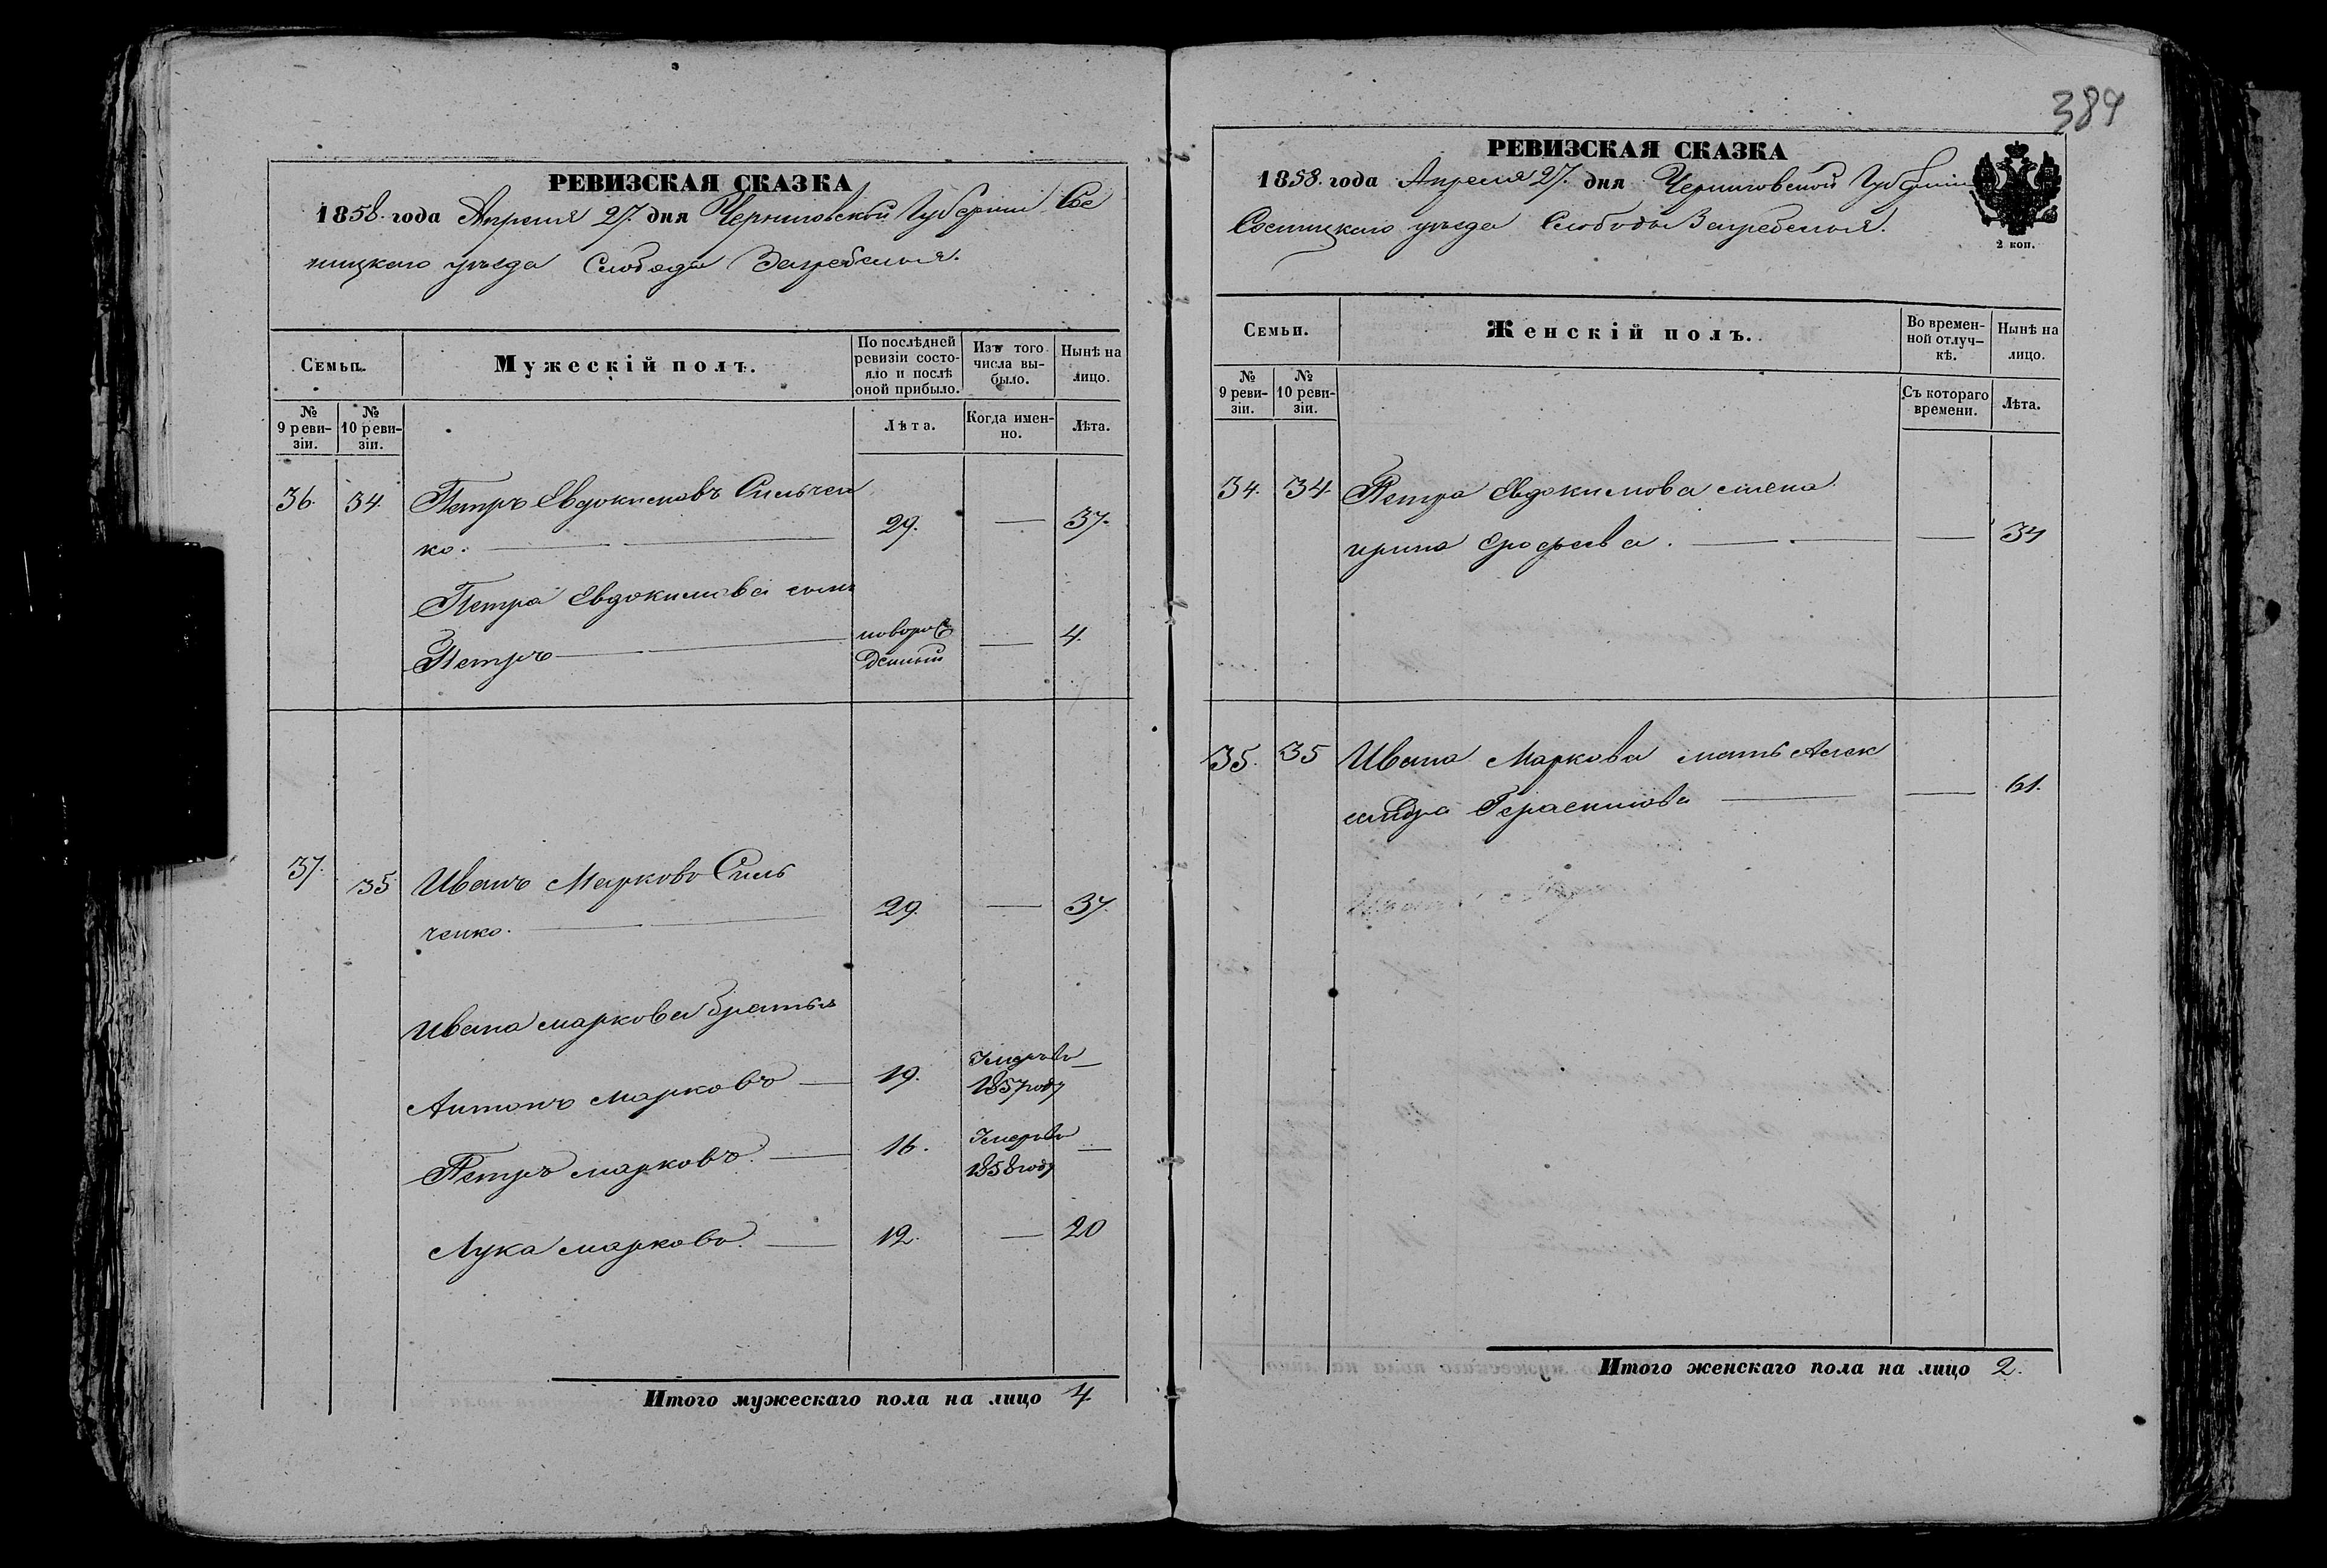 РЕВИЗСКАЯ СКАЗКА
1858. года Апреля 27. дня Черниговской Губернии Сос
ницкаго уезда Слободы Загребелья.
Семьи.
Мужескій полъ.
По послѣдней ревизіи состояло и послѣ оной прибыло.
Изъ того числа выбыло.
Нынѣ на лицо.
№ 9 ревизіи.
№ 10 ревизіи.
Лѣта.
Когда именно.
Лѣта.
36. 34. Петръ Евдокимовъ Сильчен
ко. 29. — 37.
Петра Евдокимова сынъ
Петръ — новорож
денный — 4.
37. 35 Иванъ Марковъ Силь
ченко. 29. — 37.
Ивана Маркова братья
Антонъ Марковъ — 19. Умеръ въ 1857 году —
Петръ Марковъ. — 16. Умеръ въ 1858 году —
Лука Марковъ. — 12. — 20
Итого мужескаго пола на лицо 4
384
РЕВИЗСКАЯ СКАЗКА
1858. года Апреля 27. дня Черниговской Губернии
Сосницкаго уезда Слободы Загребелья.
2 коп.
Семьи.
Женскій полъ.
Во временной отлучкѣ.
Нынѣ на лицо.
№ 9 ревизіи.
№ 10 ревизіи.
Съ котораго времени.
Лѣта.
34. 34. Петра Евдокимова жена
ирина Ерофеева. — — 34
35. 35 Ивана Маркова мать Алек
сандра Герасимова — — 61.
Итого женскаго пола на лицо 2.